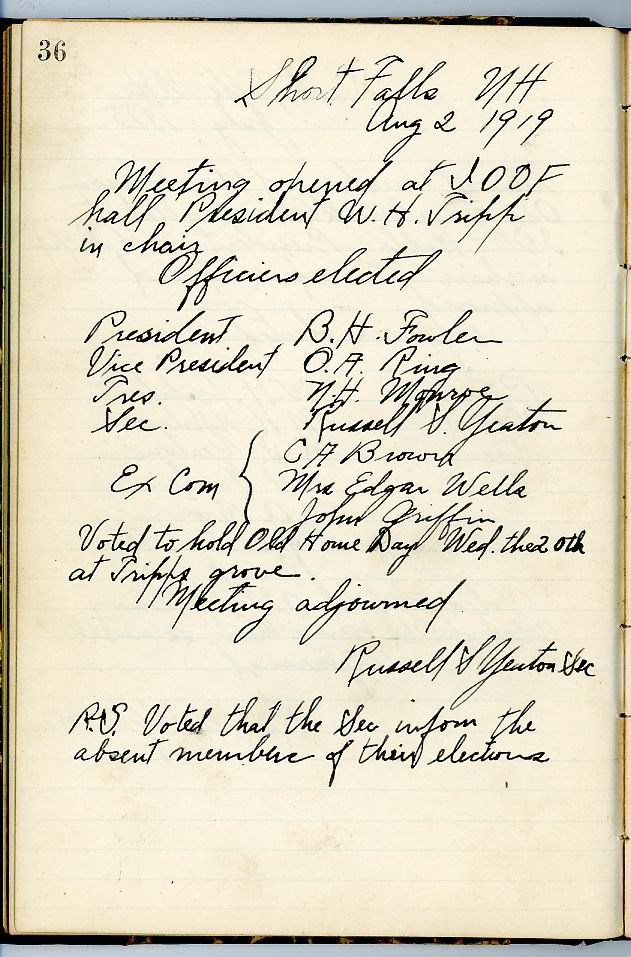 36
Short Falls NH
Aug 2 1919
Meeting opened at I O O F
hall President W. H. Tripp
in chair
Officiers elected
President B. H. Fowler
Vice President O. A. Ring
Tres. N. H. Monroe
Sec. Russell S. Yeaton
Ex Com { C A Brown
Mrs Edgar Wells
John Griffin
Voted to hold Old Home Day Wed. the 20th
at Tripps grove.
Meeting adjourned
Russell S Yeaton Sec
P.S. Voted that the Sec inform the
absent members of their elections